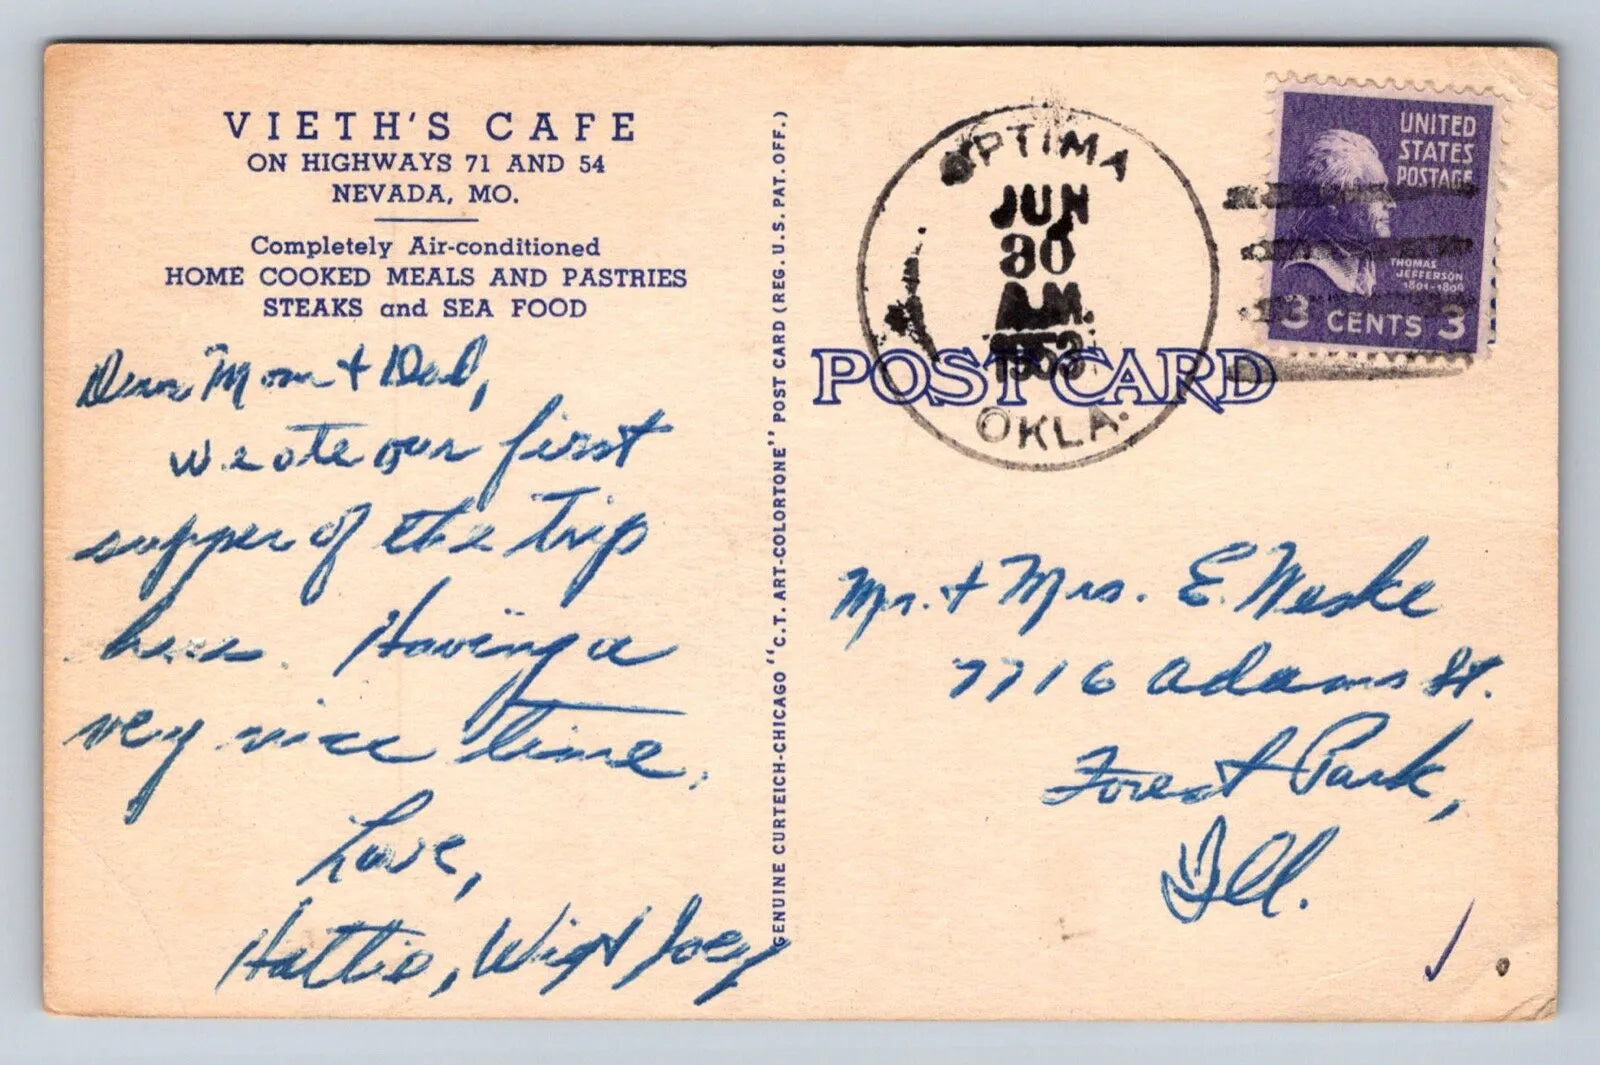 VIETH'S CAFE
ON HIGHWAYS 71 AND 54
NEVADA, MO.
Completely Air-conditioned
HOME COOKED MEALS AND PASTRIES
STEAKS and SEA FOOD
Dear Mom + Dad,
We ate our first
supper of the trip
here. Having a
very nice time.
Love,
Hattie, Wig + Joey
GENUINE CURTEICH-CHICAGO "C.T. ART-COLORTONE" POST CARD (REG. U.S. PAT. OFF.)
OPTIMA
JUN
30
A.M.
1953
OKLA.
UNITED
STATES
POSTAGE
THOMAS
JEFFERSON
1801-1809
3 CENTS 3
POST CARD
Mr. + Mrs. E. Weske
7716 Adams St.
Forest Park,
Ill.